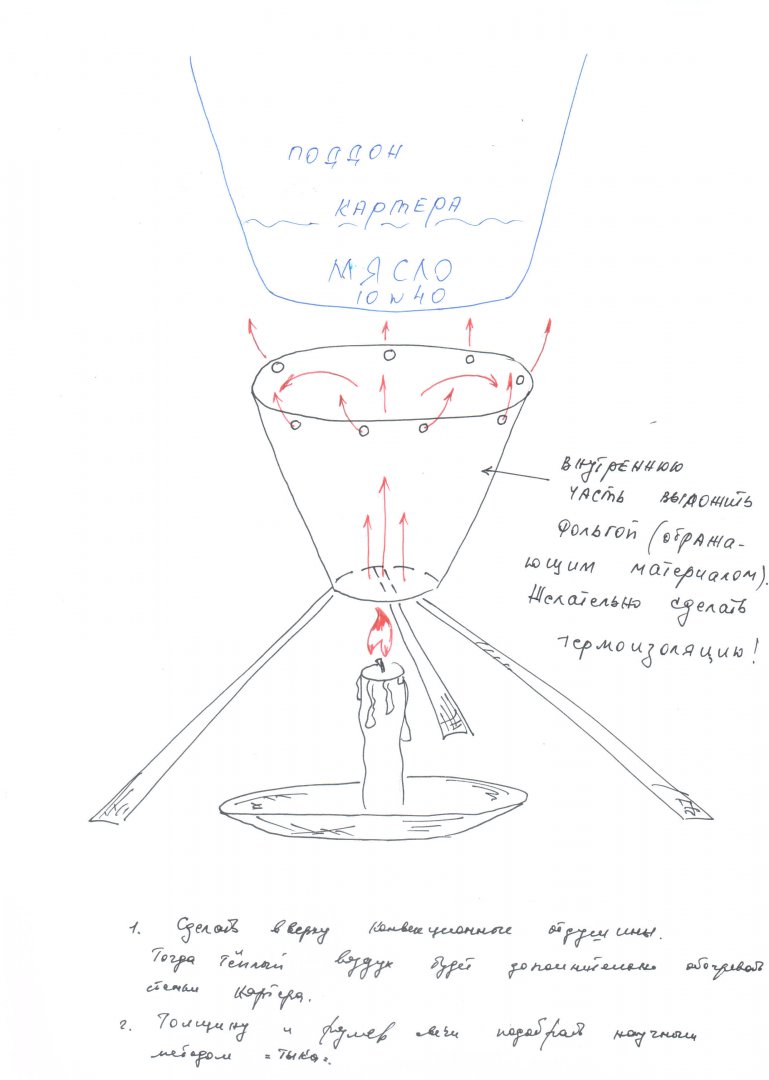 ПОДДОН
КАРТЕРА
МЯСЛО
10 W 40
ВНУТРЕННЮЮ
ЧАСТЬ ВЫЛОЖИТЬ
ФОЛЬГОЙ (ОТРАЖА-
ЮЩИМ МАТЕРИАЛОМ).
ЖЕЛАТЕЛЬНО СДЕЛАТЬ
ТЕРМОИЗОЛЯЦИЮ!
1. Сделать вверху конвекционные отдушины.
Тогда тёплый воздух будет дополнительно обогревать
стенки картера.
2. Толщину и размер свечи подобрать научным
методом "тыка".